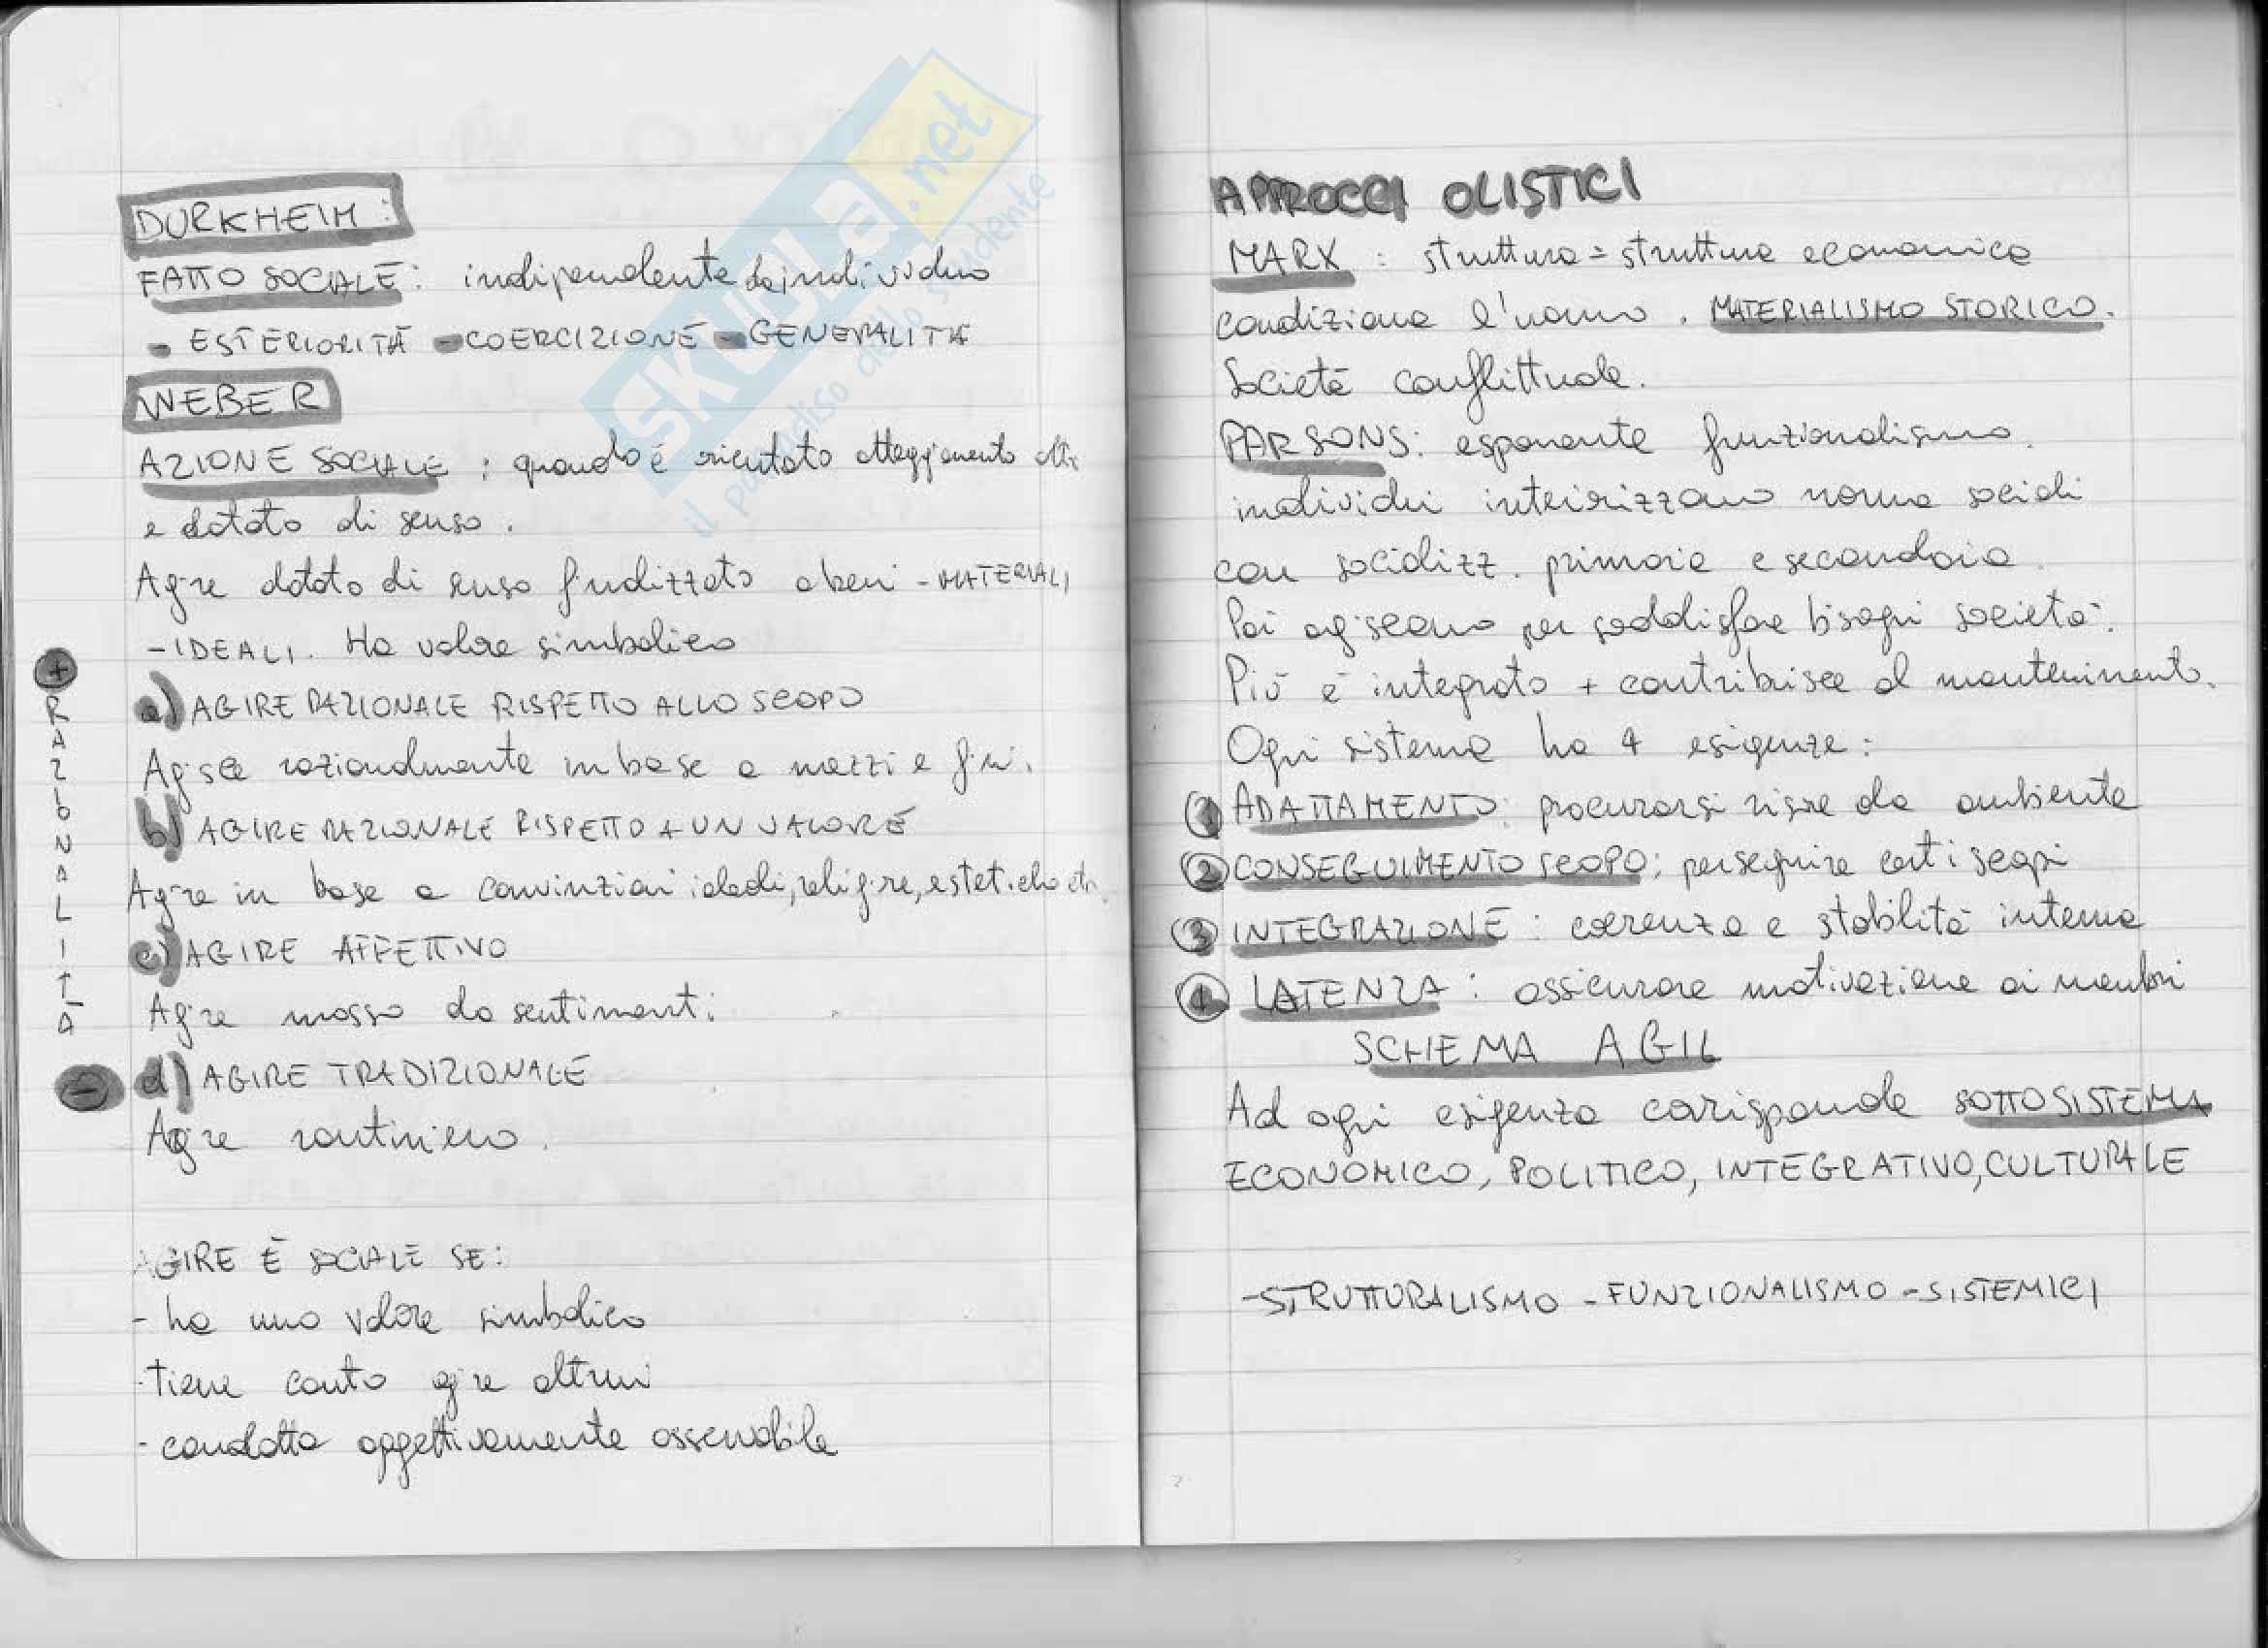 DURKHEIM:
FATTO SOCIALE: indipendente da individuo
- ESTERIORITÀ - COERCIZIONE - GENERALITÀ
WEBER
AZIONE SOCIALE: quando è orientato atteggiamento altri
e dotato di senso.
Agire dotato di senso finalizzato a beni - MATERIALI
- IDEALI. Ha valore simbolico
a) AGIRE RAZIONALE RISPETTO ALLO SCOPO
Agisce razionalmente in base a mezzi e fini.
b) AGIRE RAZIONALE RISPETTO A UN VALORE
Agire in base a convinzioni ideali, religiose, estetiche etc.
c) AGIRE AFFETTIVO
Agire mosso da sentimenti
d) AGIRE TRADIZIONALE
Agire routiniero.
+ RAZIONALITÀ -
AGIRE È SOCIALE SE:
- ha uno valore simbolico
- tiene conto agire altrui
- condotta oggettivamente osservabile
APPROCCI OLISTICI
MARX: struttura = struttura economica
condiziona l'uomo. MATERIALISMO STORICO.
Società conflittuale.
PARSONS: esponente funzionalismo.
individui interiorizzano norme sociali
con socializz. primaria e secondaria.
Poi agiscono per soddisfare bisogni società.
Più è integrato + contribuisce al mantenimento.
Ogni sistema ha 4 esigenze:
1 ADATTAMENTO: procurarsi risorse da ambiente
2 CONSEGUIMENTO SCOPO: perseguire certi scopi
3 INTEGRAZIONE: coerenza e stabilità interna
4 LATENZA: assicurare motivazione ai membri
SCHEMA AGIL
Ad ogni esigenza corrisponde SOTTOSISTEMA
ECONOMICO, POLITICO, INTEGRATIVO, CULTURALE
- STRUTTURALISMO - FUNZIONALISMO - SISTEMICI
SKUOLA.net
il paradiso dello studente